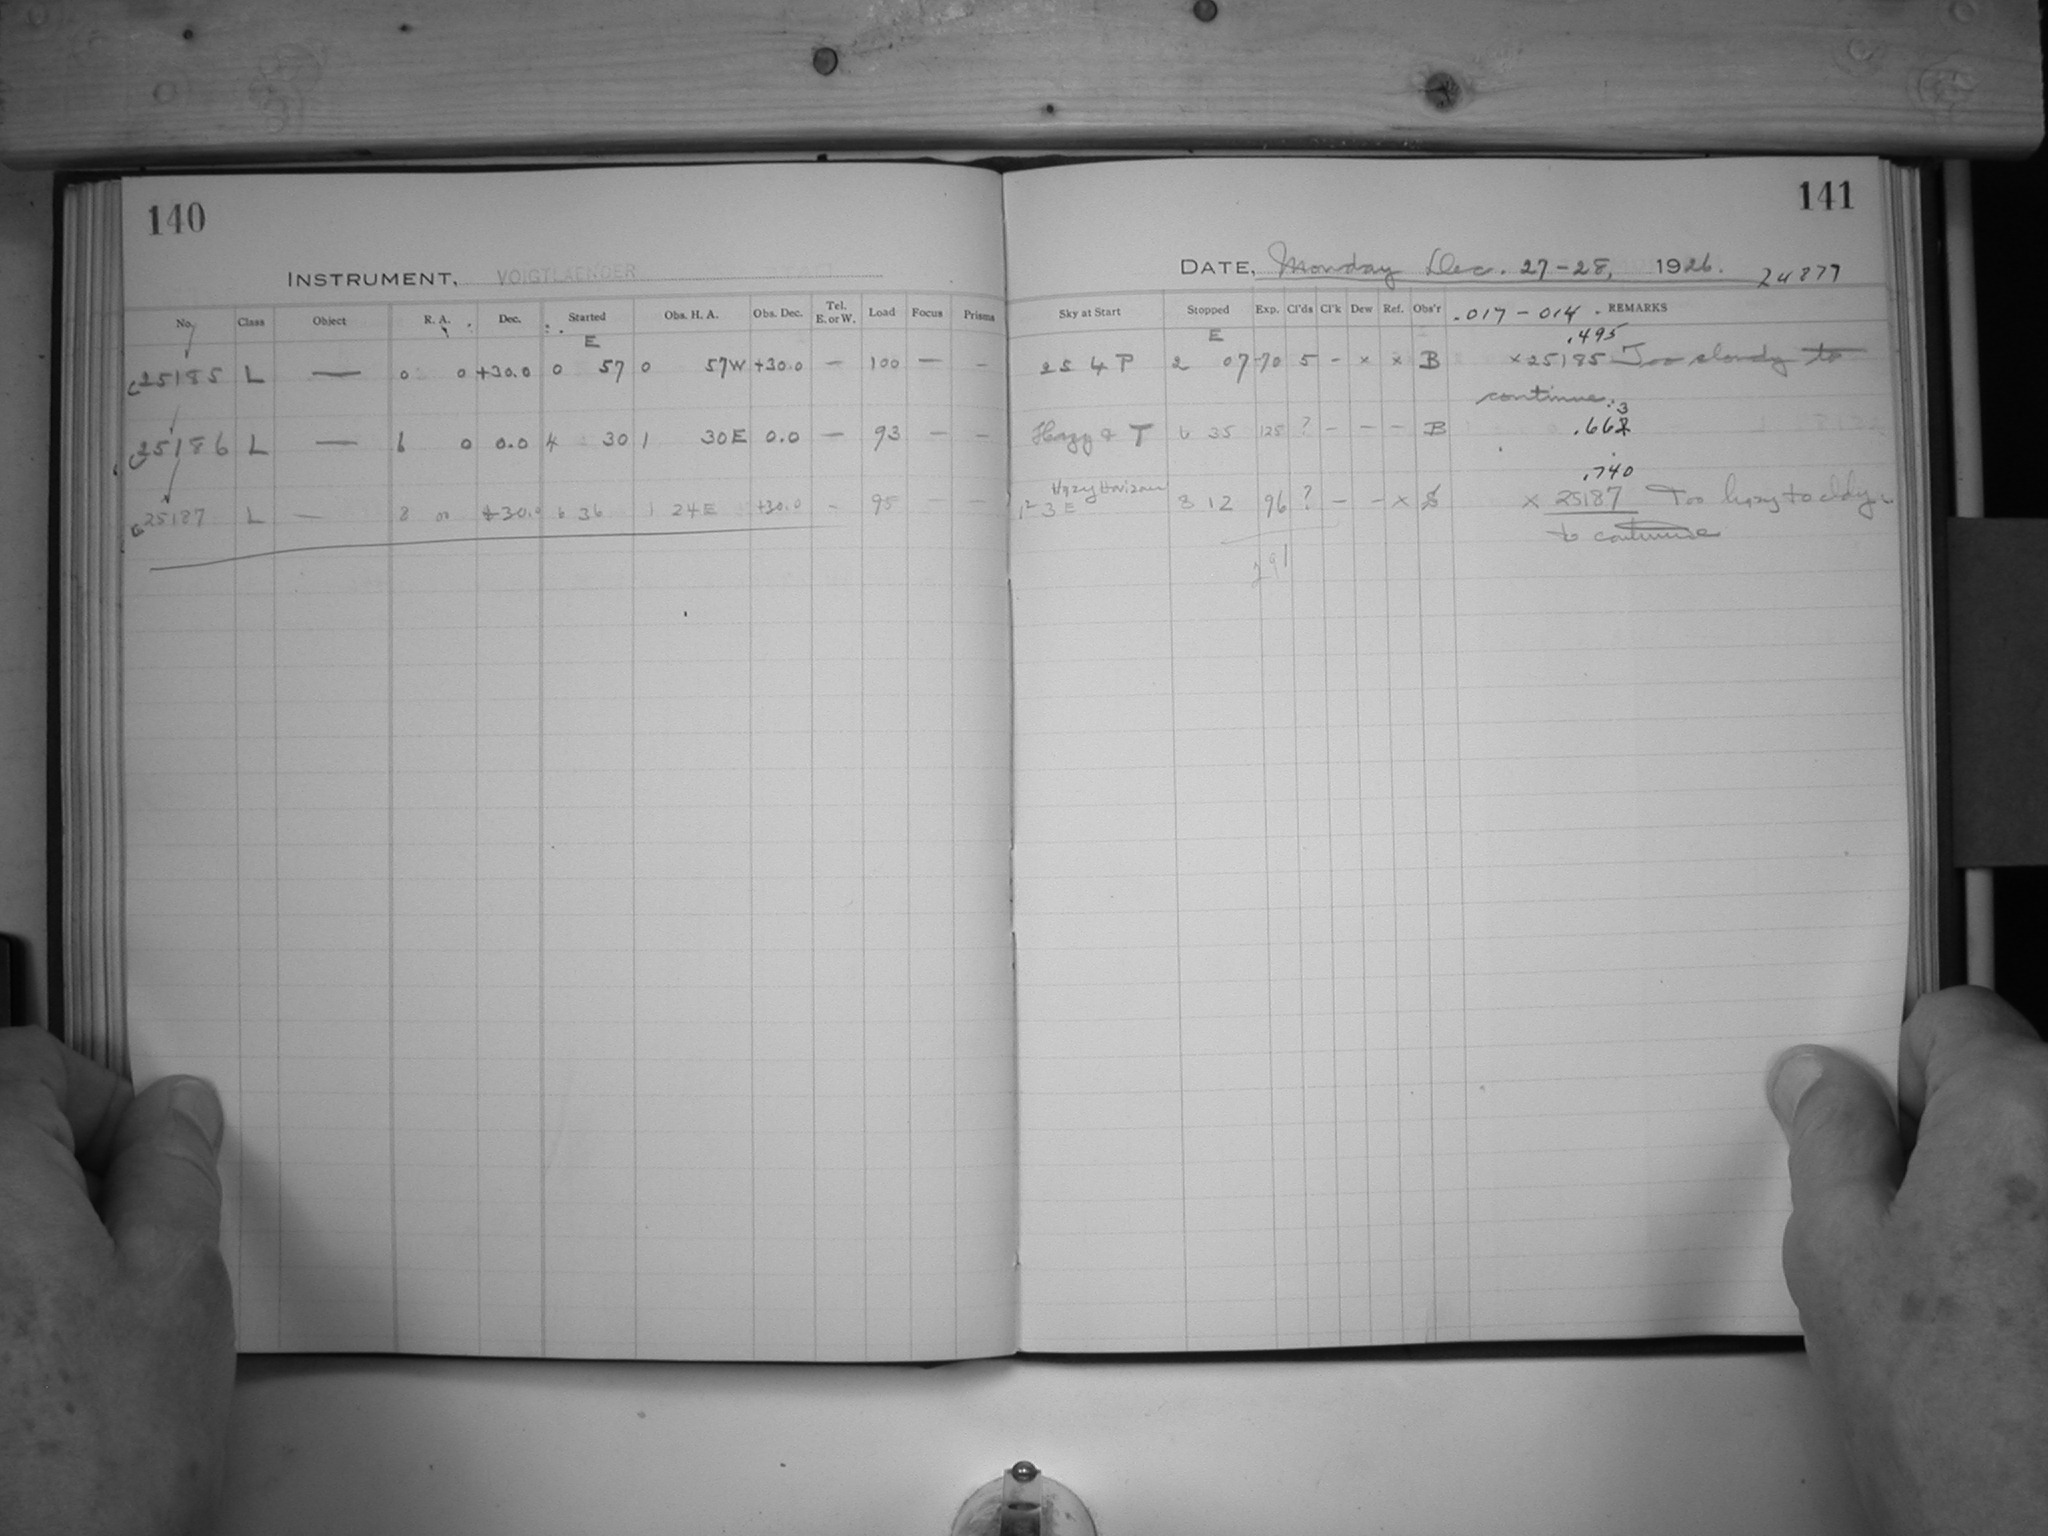 140
INSTRUMENT, VOIGTLAENDER
No. Class Object R. A. Dec. Started Obs. H. A. Obs. Dec. Tel. E. or W. Load Focus Prisms
E
25185 L — 0 0 +30.0 0 57 0 57W +30.0 — 100 — —
25186 L — 6 0 0.0 4 30 1 30E 0.0 — 93 — —
25187 L — 8 00 +30.0 6 36 1 24E +30.0 — 95 — —
141
DATE, Monday Dec. 27-28, 1926. 24877
Sky at Start Stopped Exp. Cl'ds Cl'k Dew Ref. Obs'r .017 - 014 . REMARKS
E .495
25 4 P 2 07 70 5 - × × B × 25185 Too cloudy to
continue.
3
Hazy & T 6 35 125 ? - - - B .662
.740
Hazy Horizon
12 3 E 3 12 96 ? - - × S × 25187 Too hazy to cldy
to continue
291